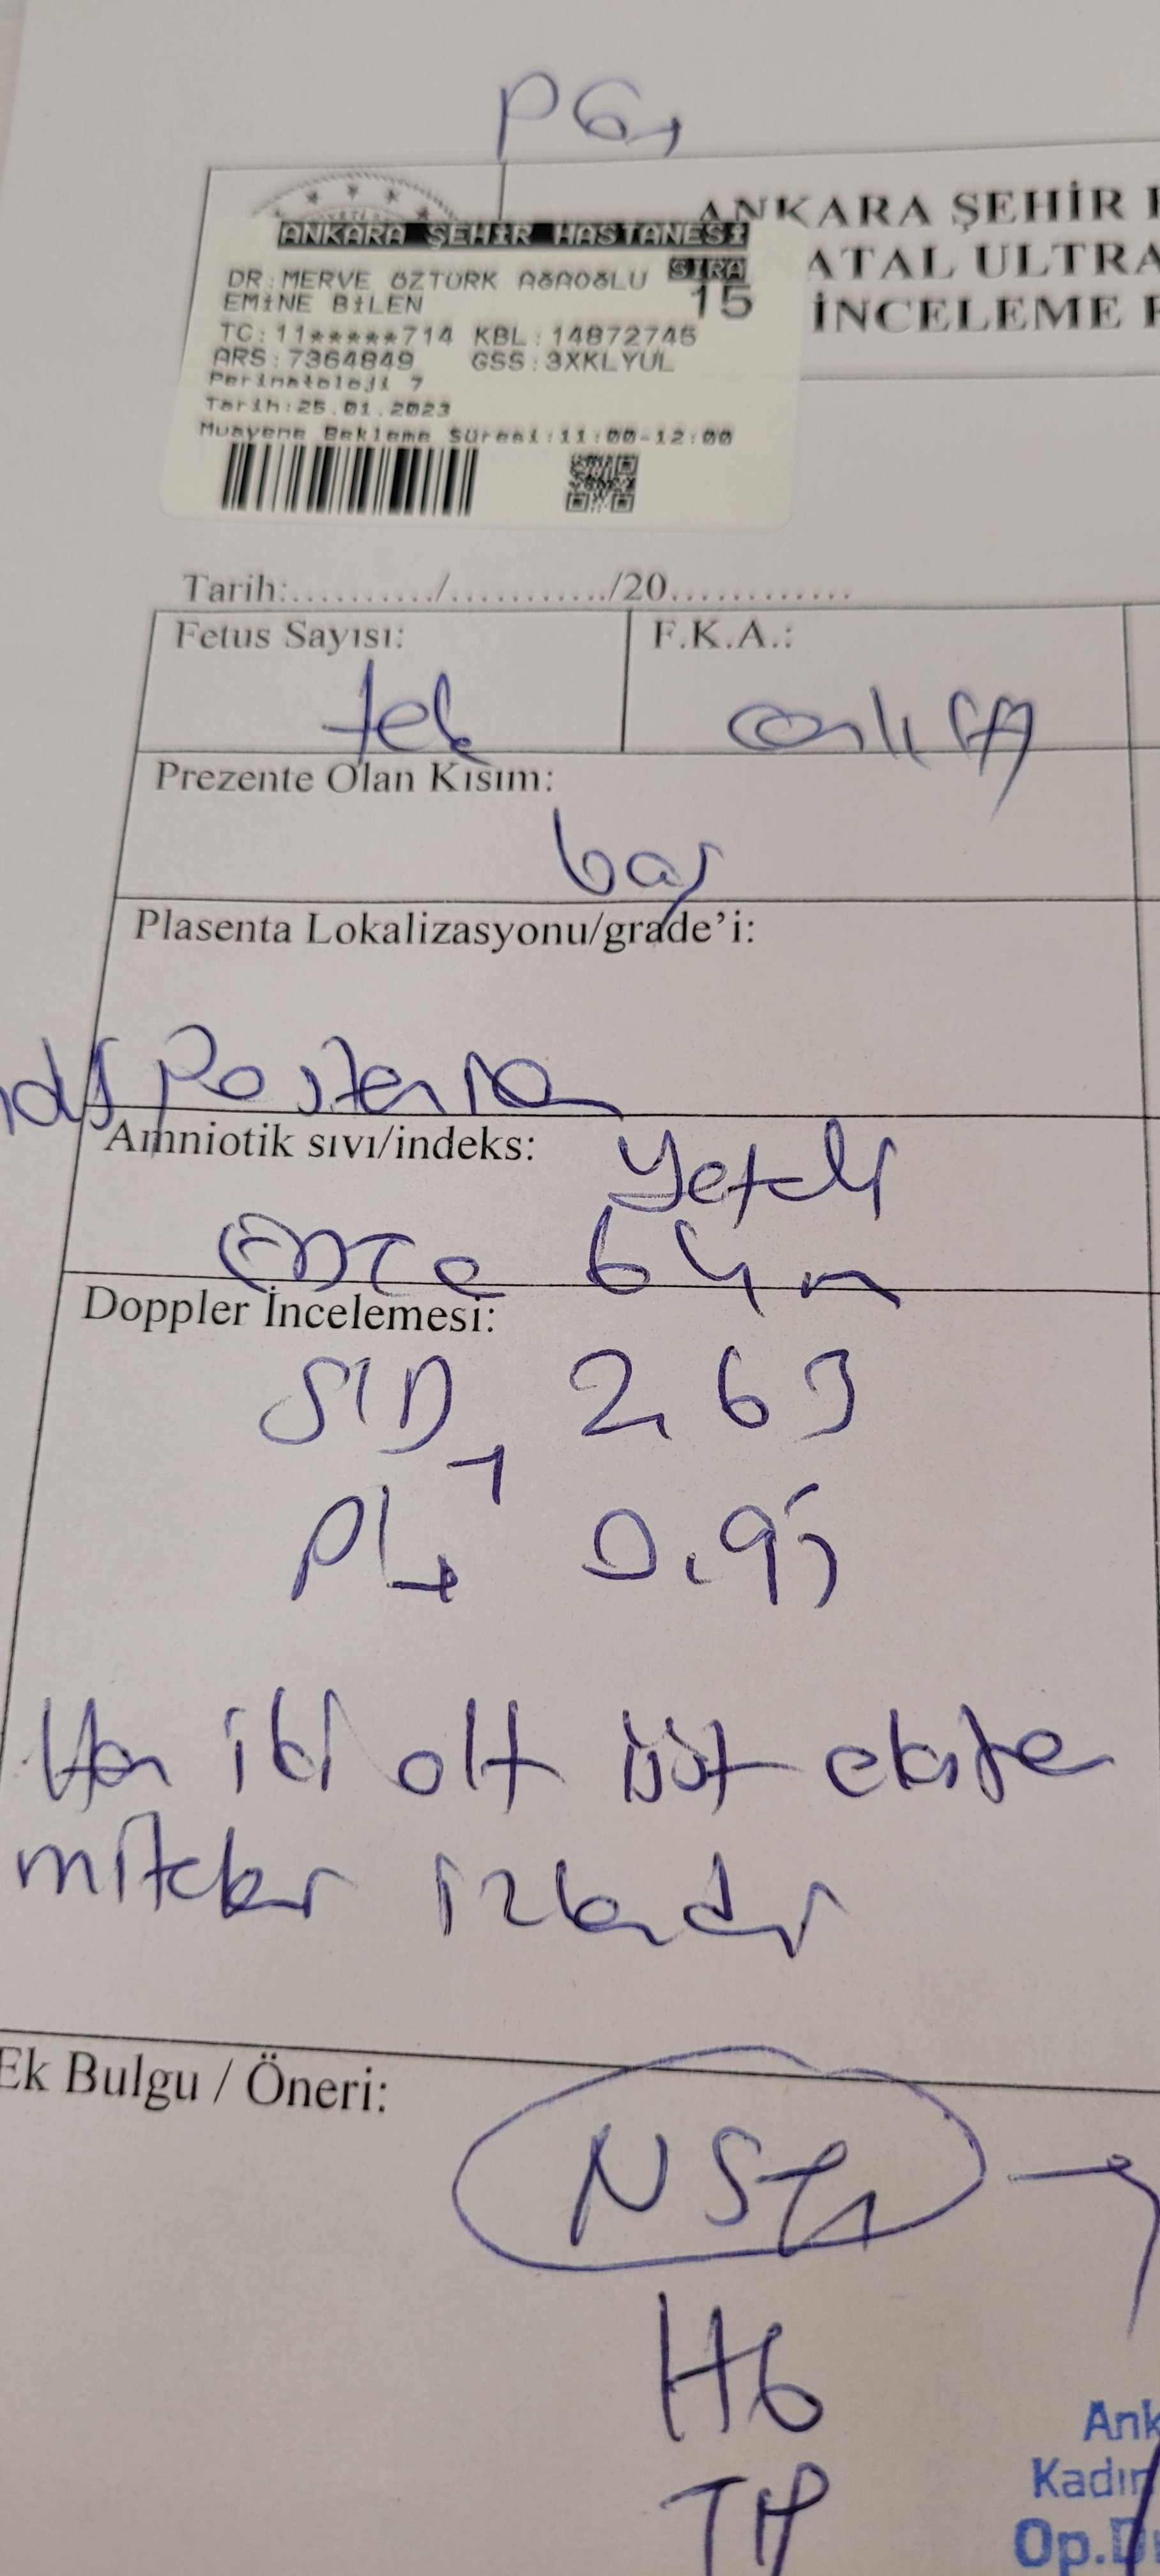 PG
ANKARA ŞEHİR
ATAL ULTRA
İNCELEME
ANKARA ŞEHİR HASTANESİ
DR:MERVE ÖZTÜRK AĞAOĞLU SIRA
EMİNE BİLEN 15
TC:11*****714 KBL:14872745
ARS:7364849 GSS:3XKLYUL
Perinatoloji 7
Tarih:25.01.2023
Muayene Bekleme Süresi:11:00-12:00
Tarih:........../.........../20.............
Fetus Sayısı: F.K.A.:
tek
Prezente Olan Kısım:
baş
Plasenta Lokalizasyonu/grade'i:
Posterior
Amniotik sıvı/indeks: Yeterli
64
Doppler İncelemesi:
S/D 2,63
PI 0.95
Her iki alt üst ekstre
miteler izlendi
Ek Bulgu / Öneri:
NST
Hb
Ank
Kadın
Op.D